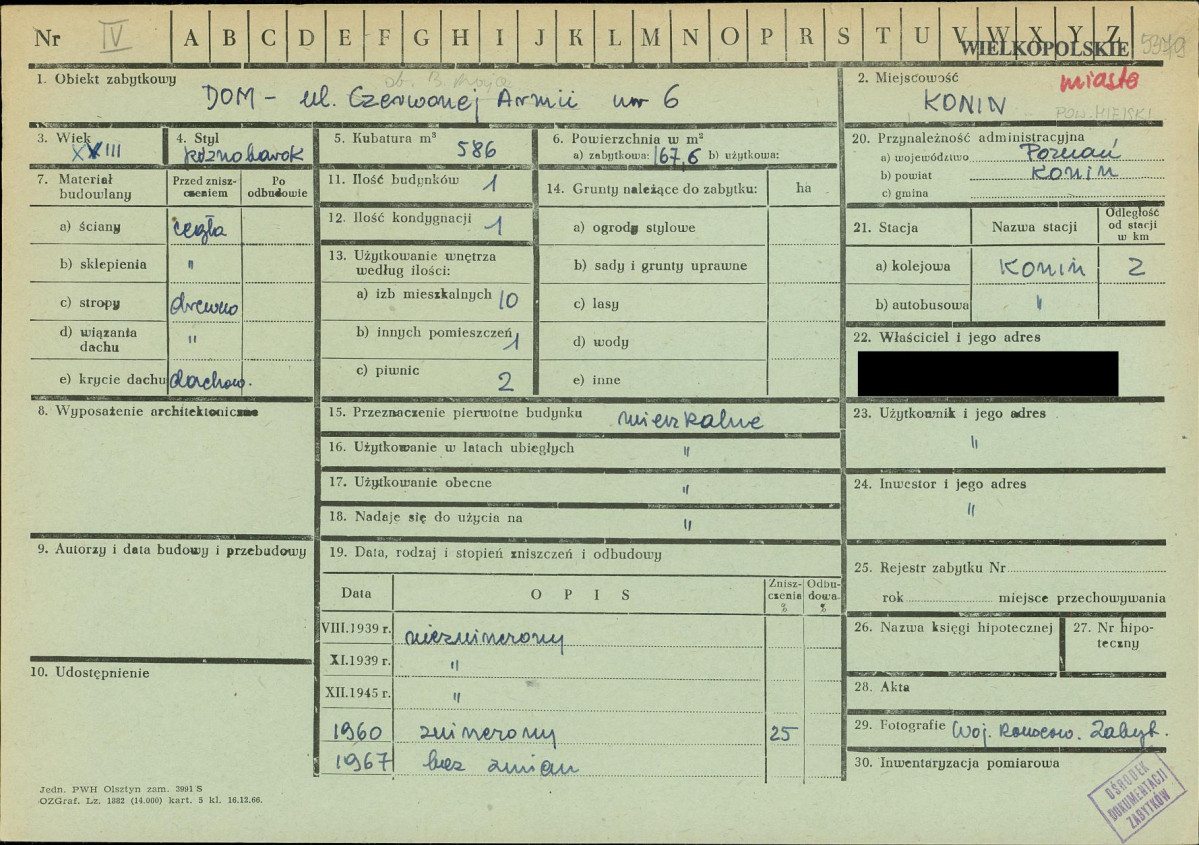 Nr IV A B C D E F G H I J K L M N O P R S T U V W X Y Z WIELKOPOLSKIE 5379
1. Obiekt zabytkowy
ob. B.
DOM - ul. Czerwonej Armii nr 6
2. Miejscowość
miasto
KONIN
POW. MIEJSKI
3. Wiek
XVIII
4. Styl
późnobarok
5. Kubatura m³
586
6. Powierzchnia w m²
a) zabytkowa: 167,6 b) użytkowa:
20. Przynależność administracyjna
a) województwo Poznań
b) powiat Konin
c) gmina
7. Materiał budowlany
Przed znisz-czeniem
Po odbudowie
a) ściany cegła
b) sklepienia "
c) stropy drewno
d) wiązania dachu "
e) krycie dachu dachow.
11. Ilość budynków 1
12. Ilość kondygnacji 1
13. Użytkowanie wnętrza
według ilości:
a) izb mieszkalnych 10
b) innych pomieszczeń 1
c) piwnic 2
14. Grunty należące do zabytku: ha
a) ogrody stylowe
b) sady i grunty uprawne
c) lasy
d) wody
e) inne
21. Stacja
Nazwa stacji
Odległość
od stacji
w km
a) kolejowa KONIN 2
b) autobusowa "
22. Właściciel i jego adres
8. Wyposażenie architektoniczne
15. Przeznaczenie pierwotne budynku mieszkalne
16. Użytkowanie w latach ubiegłych "
17. Użytkowanie obecne "
18. Nadaje się do użycia na "
23. Użytkownik i jego adres
"
24. Inwestor i jego adres
"
9. Autorzy i data budowy i przebudowy
19. Data, rodzaj i stopień zniszczeń i odbudowy
Data
O P I S
Znisz-
czenia
%
Odbu-
dowa
%
VIII.1939 r. niezniszczony
XI.1939 r. "
XII.1945 r. "
1960 zniszczony 25
1967 bez zmian
10. Udostępnienie
25. Rejestr zabytku Nr
rok miejsce przechowywania
26. Nazwa księgi hipotecznej
27. Nr hipo-
teczny
28. Akta
29. Fotografie Woj. Konserw. Zabyt.
30. Inwentaryzacja pomiarowa
Jedn. PWH Olsztyn zam. 3991 S
OZGraf. Lz. 1882 (14.000) kart. 5 kl. 16.12.66.
OŚRODEK
DOKUMENTACJI
ZABYTKÓW